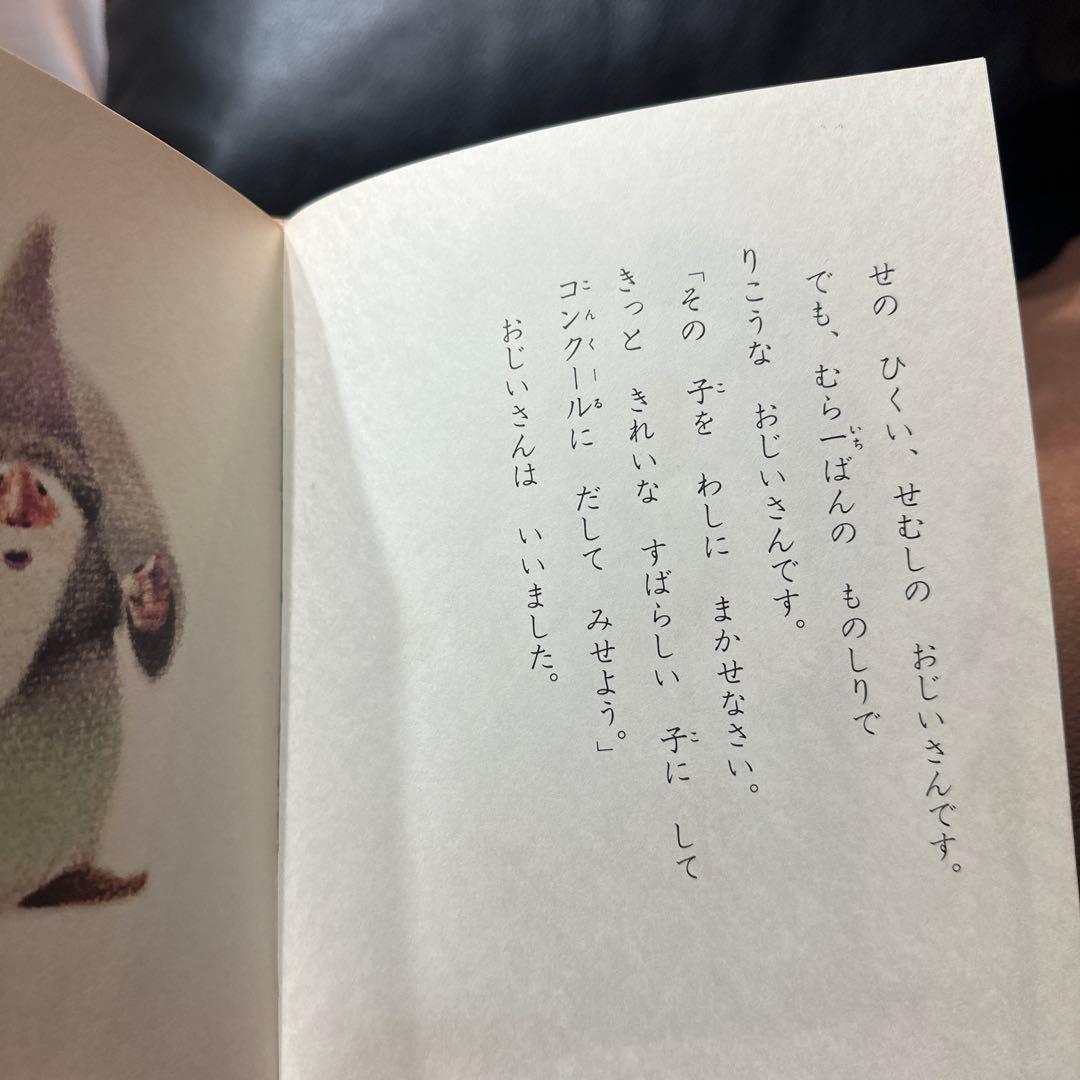 せの ひくい、せむしの おじいさんです。
でも、むら一ばんの ものしりで
いち
りこうな おじいさんです。
「その 子を わしに まかせなさい。
こ
きっと きれいな すばらしい 子に して
こ
コンクールに だして みせよう。」
こんくーる
おじいさんは いいました。